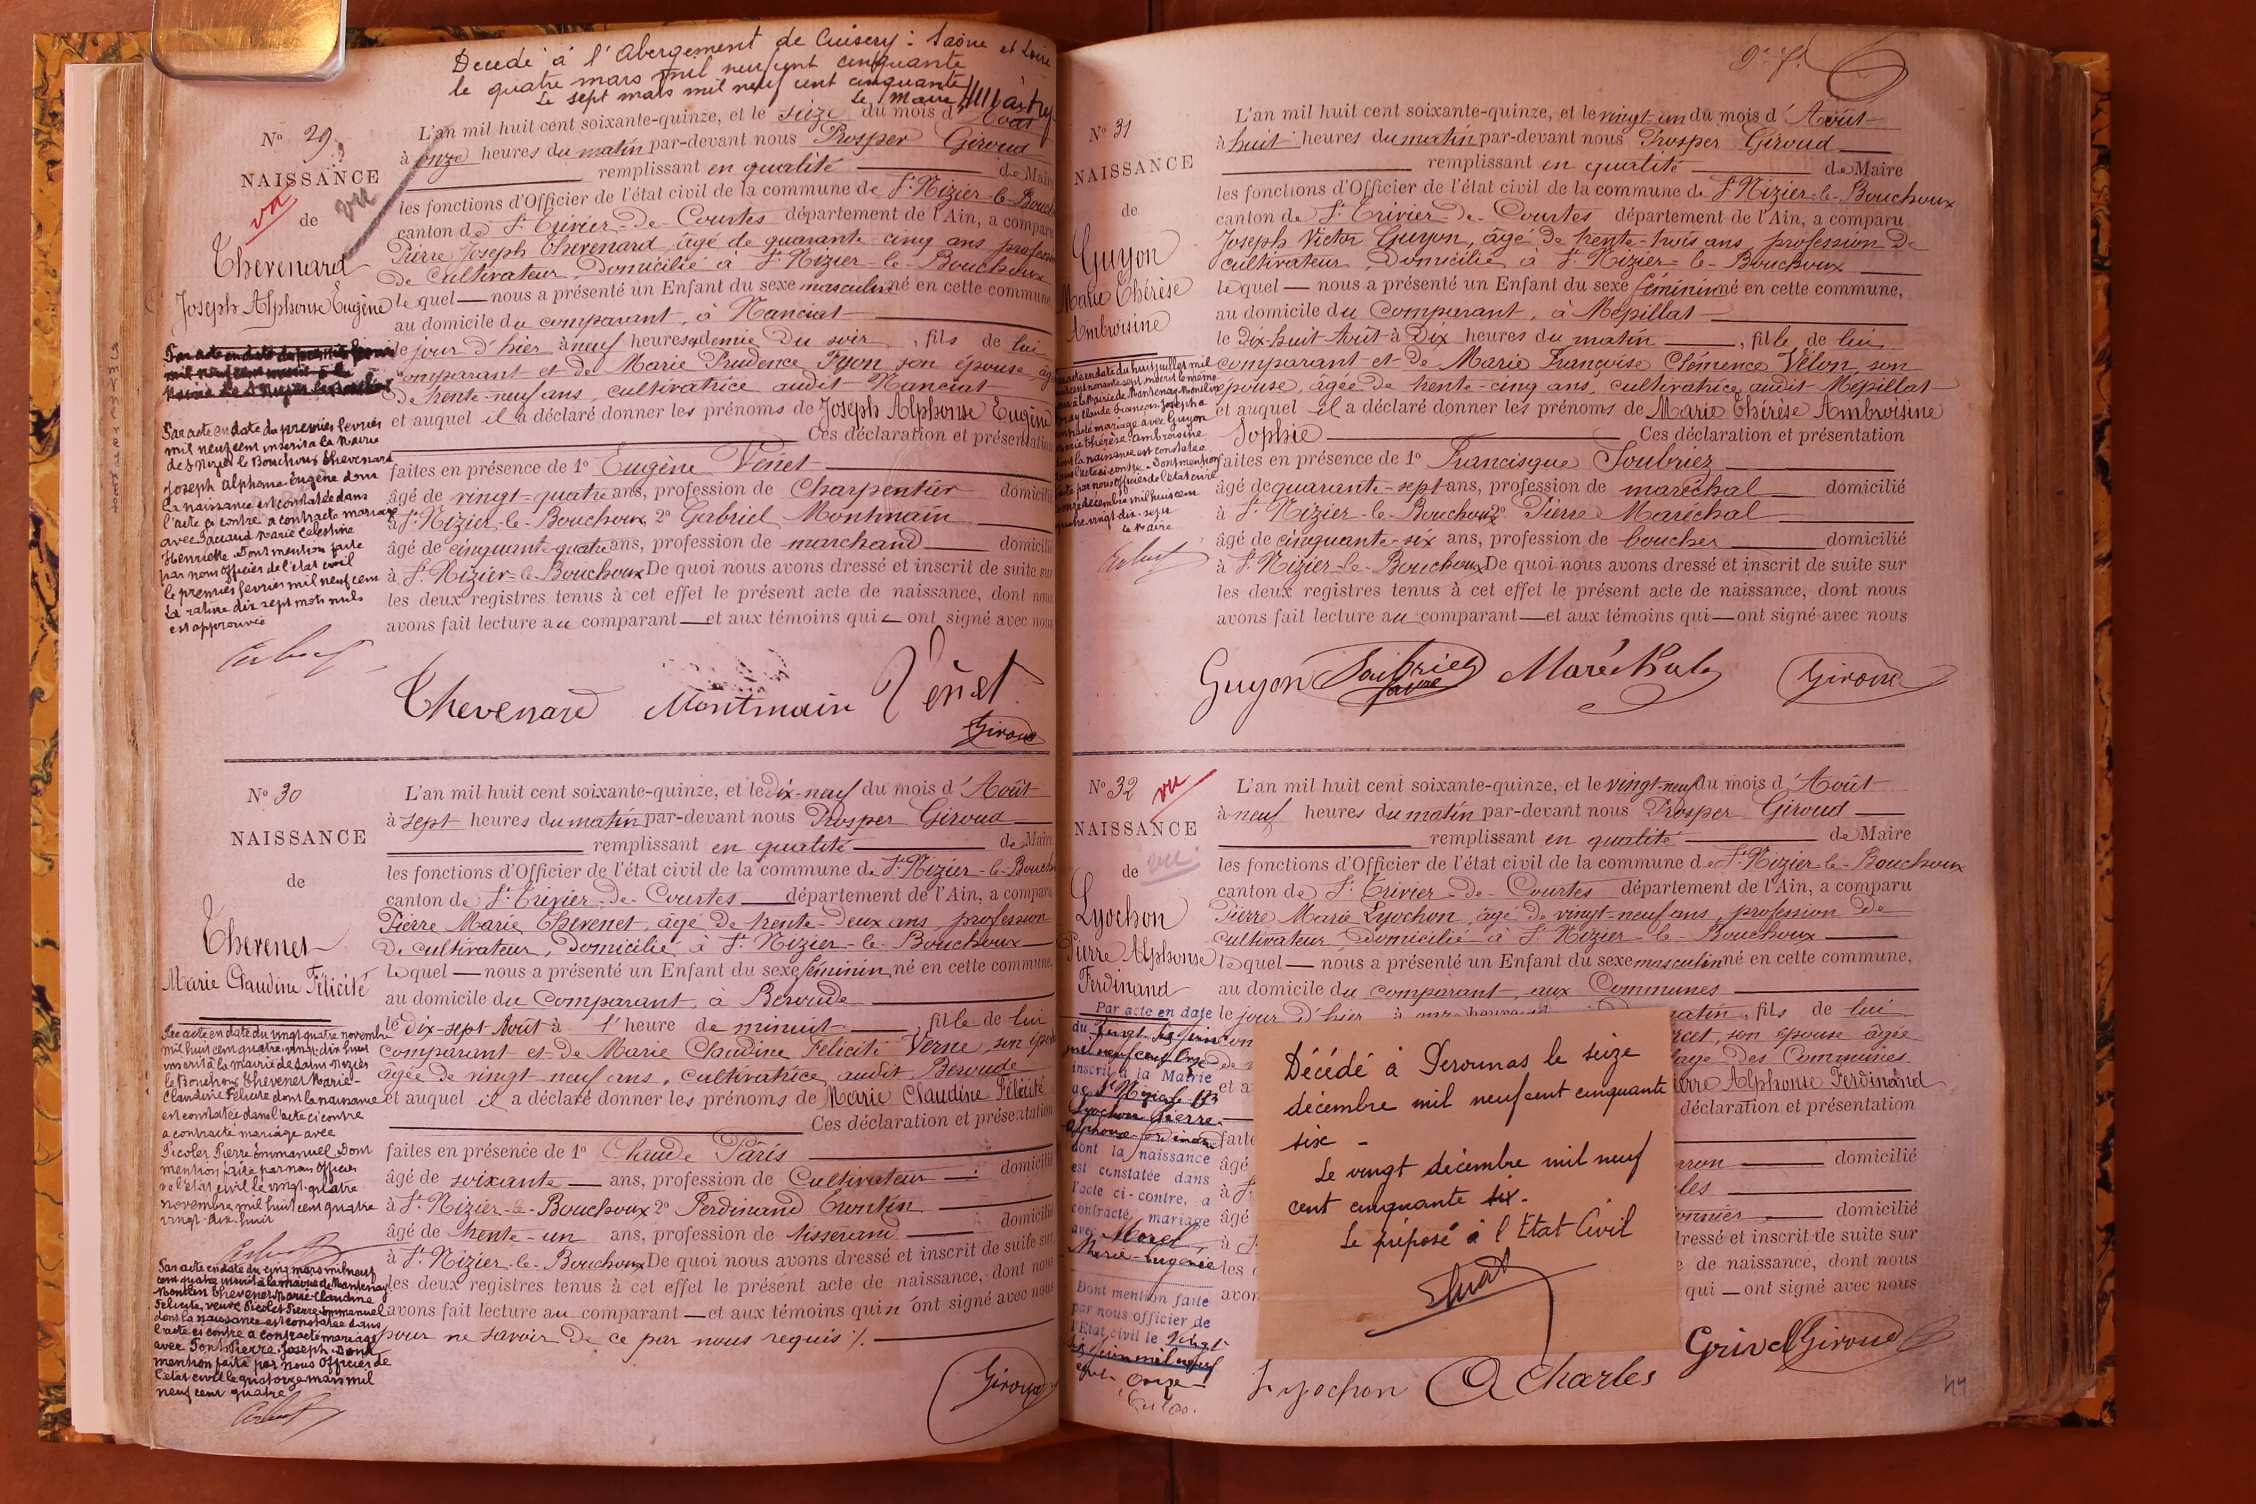 Décédé à l'Abergement de Cuisery : Saône et Loire
le quatre mars mil neuf cent cinquante
Le sept mars mil neuf cent cinquante
Le Maire
N° 29
NAISSANCE
vu
de
vu
Thevenard
Joseph Alphonse Eugène
Par acte en date du premier fevrier
mil neuf cent inscrit à la Mairie
de St Nizier le Bouchoux Thevenard
Joseph Alphonse Eugène dont
la naissance est constatée dans
l'acte ci contre a contracté mariage
avec Marie Celestine
Henriette. Dont mention faite
par nous Officier de l'état civil
le premier fevrier mil neuf cent
La rature dix sept mots nuls
est approuvée
L'an mil huit cent soixante-quinze, et le seize du mois d'Août
à onze heures du matin par-devant nous Prosper Giroud
remplissant en qualité de Maire
les fonctions d'Officier de l'état civil de la commune de St Nizier-le-Bouch
canton de St Trivier-de-Courtes département de l'Ain, a comparu
Pierre Joseph Thevenard, âgé de quarante-cinq ans, profession
de cultivateur, domicilié à St Nizier-le-Bouchoux
lequel — nous a présenté un Enfant du sexe masculin né en cette commune,
au domicile du comparant, à Nanciat
le jour d'hier à neuf heures et demie du soir, fils de lui
comparant et de Marie Prudence Pyon son épouse, âgée
de trente-neuf ans, cultivatrice audit Nanciat
et auquel il a déclaré donner les prénoms de Joseph Alphonse Eugène
Ces déclaration et présentation
faites en présence de 1° Eugène Venet
âgé de vingt-quatre ans, profession de Charpentier domicilié
à St Nizier-le-Bouchoux 2° Gabriel Montmain
âgé de cinquante-quatre ans, profession de marchand domicilié
à St Nizier-le-Bouchoux De quoi nous avons dressé et inscrit de suite sur
les deux registres tenus à cet effet le présent acte de naissance, dont nous
avons fait lecture au comparant — et aux témoins qui — ont signé avec nous
Thevenard Montmain Venet
Giroud
N° 30
NAISSANCE
de
Thevenet
Marie Claudine Félicité
Par acte en date du vingt quatre novembre
mil huit cent quatre vingt dix huit
inscrit à la mairie de Saint Nizier
le Bouchoux Thevenet Marie-
Claudine Félicité dont la naissance
est constatée dans l'acte ci contre
a contracté mariage avec
Picolet Pierre Emmanuel. Dont
mention faite par nous Officier
de l'état civil le vingt quatre
novembre mil huit cent quatre
vingt-dix-huit
Par acte en date du cinq mars mil neuf
cent quatre inscrit à la mairie de Mantenay
Montlin Thevenet Marie-Claudine
Félicité, veuve Picolet Pierre Emmanuel
dont la naissance est constatée dans
l'acte ci contre a contracté mariage
avec Pont Pierre Joseph. Dont
mention faite par nous Officier de
l'état civil le quatorze mars mil
neuf cent quatre
L'an mil huit cent soixante-quinze, et le dix-neuf du mois d'Août
à sept heures du matin par-devant nous Prosper Giroud
remplissant en qualité de Maire
les fonctions d'Officier de l'état civil de la commune de St Nizier-le-Bouch
canton de St Trivier-de-Courtes département de l'Ain, a comparu
Pierre Marie Thevenet, âgé de trente-deux ans, profession
de cultivateur, domicilié à St Nizier-le-Bouchoux
lequel — nous a présenté un Enfant du sexe féminin né en cette commune,
au domicile du comparant, à Beroude
le dix-sept Août à l'heure de minuit, fille de lui
comparant et de Marie Claudine Félicité Verne, son épouse
âgée de vingt-neuf ans, cultivatrice audit Beroude
et auquel il a déclaré donner les prénoms de Marie Claudine Félicité
Ces déclaration et présentation
faites en présence de 1° Claude Pâris
âgé de soixante ans, profession de Cultivateur domicilié
à St Nizier-le-Bouchoux 2° Ferdinand Trontin
âgé de trente-un ans, profession de tisserand domicilié
à St Nizier-le-Bouchoux De quoi nous avons dressé et inscrit de suite sur
les deux registres tenus à cet effet le présent acte de naissance, dont nous
avons fait lecture au comparant — et aux témoins qui n'ont signé avec nous
pour ne savoir de ce par nous requis ./.
Giroud
N° 31
NAISSANCE
de
Guyon
Marie Thérèse
Ambroisine
L'an mil huit cent soixante-quinze, et le vingt-un du mois d'Août
à huit heures du matin par-devant nous Prosper Giroud
remplissant en qualité de Maire
les fonctions d'Officier de l'état civil de la commune de St Nizier-le-Bouchoux
canton de St Trivier-de-Courtes département de l'Ain, a comparu
Joseph Victor Guyon, âgé de trente-trois ans, profession de
cultivateur, domicilié à St Nizier-le-Bouchoux
lequel — nous a présenté un Enfant du sexe féminin né en cette commune,
au domicile du Comparant, à Mépillat
le Dix-huit Août à Dix heures du matin, fille de lui
comparant et de Marie Françoise Clémence Vélon, son
épouse, âgée de trente-cinq ans, cultivatrice audit Mépillat
et auquel il a déclaré donner les prénoms de Marie Thérèse Ambroisine
Sophie Ces déclaration et présentation
faites en présence de 1° Francisque Soubriez
âgé de quarante-sept ans, profession de maréchal domicilié
à St Nizier-le-Bouchoux 2° Pierre Maréchal
âgé de cinquante-six ans, profession de boucher domicilié
à St Nizier-le-Bouchoux De quoi nous avons dressé et inscrit de suite sur
les deux registres tenus à cet effet le présent acte de naissance, dont nous
avons fait lecture au comparant — et aux témoins qui — ont signé avec nous
Guyon Soubriez Maréchal Giroud
N° 32
vu
NAISSANCE
de
vu
Lyochon
Pierre Alphonse
Ferdinand
Par acte en date
du vingt six juin
mil neuf cent onze
inscrit à la Mairie
de St Nizier le Bx
Lyochon Pierre
Alphonse Ferdinand
dont la naissance
est constatée dans
l'acte ci-contre, a
contracté mariage
avec Morel
Marie Eugénie
Dont mention faite
par nous officier de
l'Etat civil le vingt-
six juin mil neuf
cent onze
L'an mil huit cent soixante-quinze, et le vingt-neuf du mois d'Août
à neuf heures du matin par-devant nous Prosper Giroud
remplissant en qualité de Maire
les fonctions d'Officier de l'état civil de la commune de St Nizier-le-Bouchoux
canton de St Trivier-de-Courtes département de l'Ain, a comparu
Pierre Marie Lyochon, âgé de vingt-neuf ans, profession de
cultivateur, domicilié à St Nizier-le-Bouchoux
lequel — nous a présenté un Enfant du sexe masculin né en cette commune,
au domicile du comparant, aux Communes
le jour d'hier à onze heures matin, fils de lui
son épouse âgée
des Communes
Pierre Alphonse Ferdinand
déclaration et présentation
domicilié
domicilié
dressé et inscrit de suite sur
de naissance, dont nous
qui — ont signé avec nous
Décédé à Peronnas le seize
décembre mil neuf cent cinquante
six -
Le vingt décembre mil neuf
cent cinquante six.
Le préposé à l'Etat Civil
Lyochon Charles Grivel Giroud
44